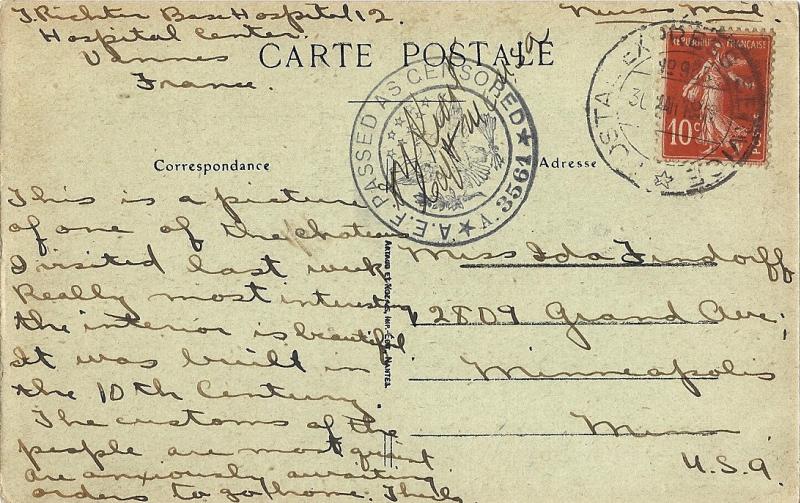 J. Richter Base Hospital 12.
Hospital Center.
Vannes
France.
Nurses Mail.
CARTE POSTALE
A.E.F. PASSED AS CENSORED
A. 3561
POSTAL EXPRESS SERVICE
30
REPUBLIQUE FRANÇAISE
10c
POSTES
Correspondance
Adresse
This is a picture
of one of the chateaus
I visited last week
Really most interesting,
the interior is beautiful
It was built in
the 10th Century.
The customs of the
people are most quaint
are anxiously awaiting
orders to go home. Thus
ARTAUD ET NOZAIS, IMP.-ÉDIT. NANTES
Miss Ida Findorff
2809 Grand Ave,
Minneapolis
Minn
U.S.A.